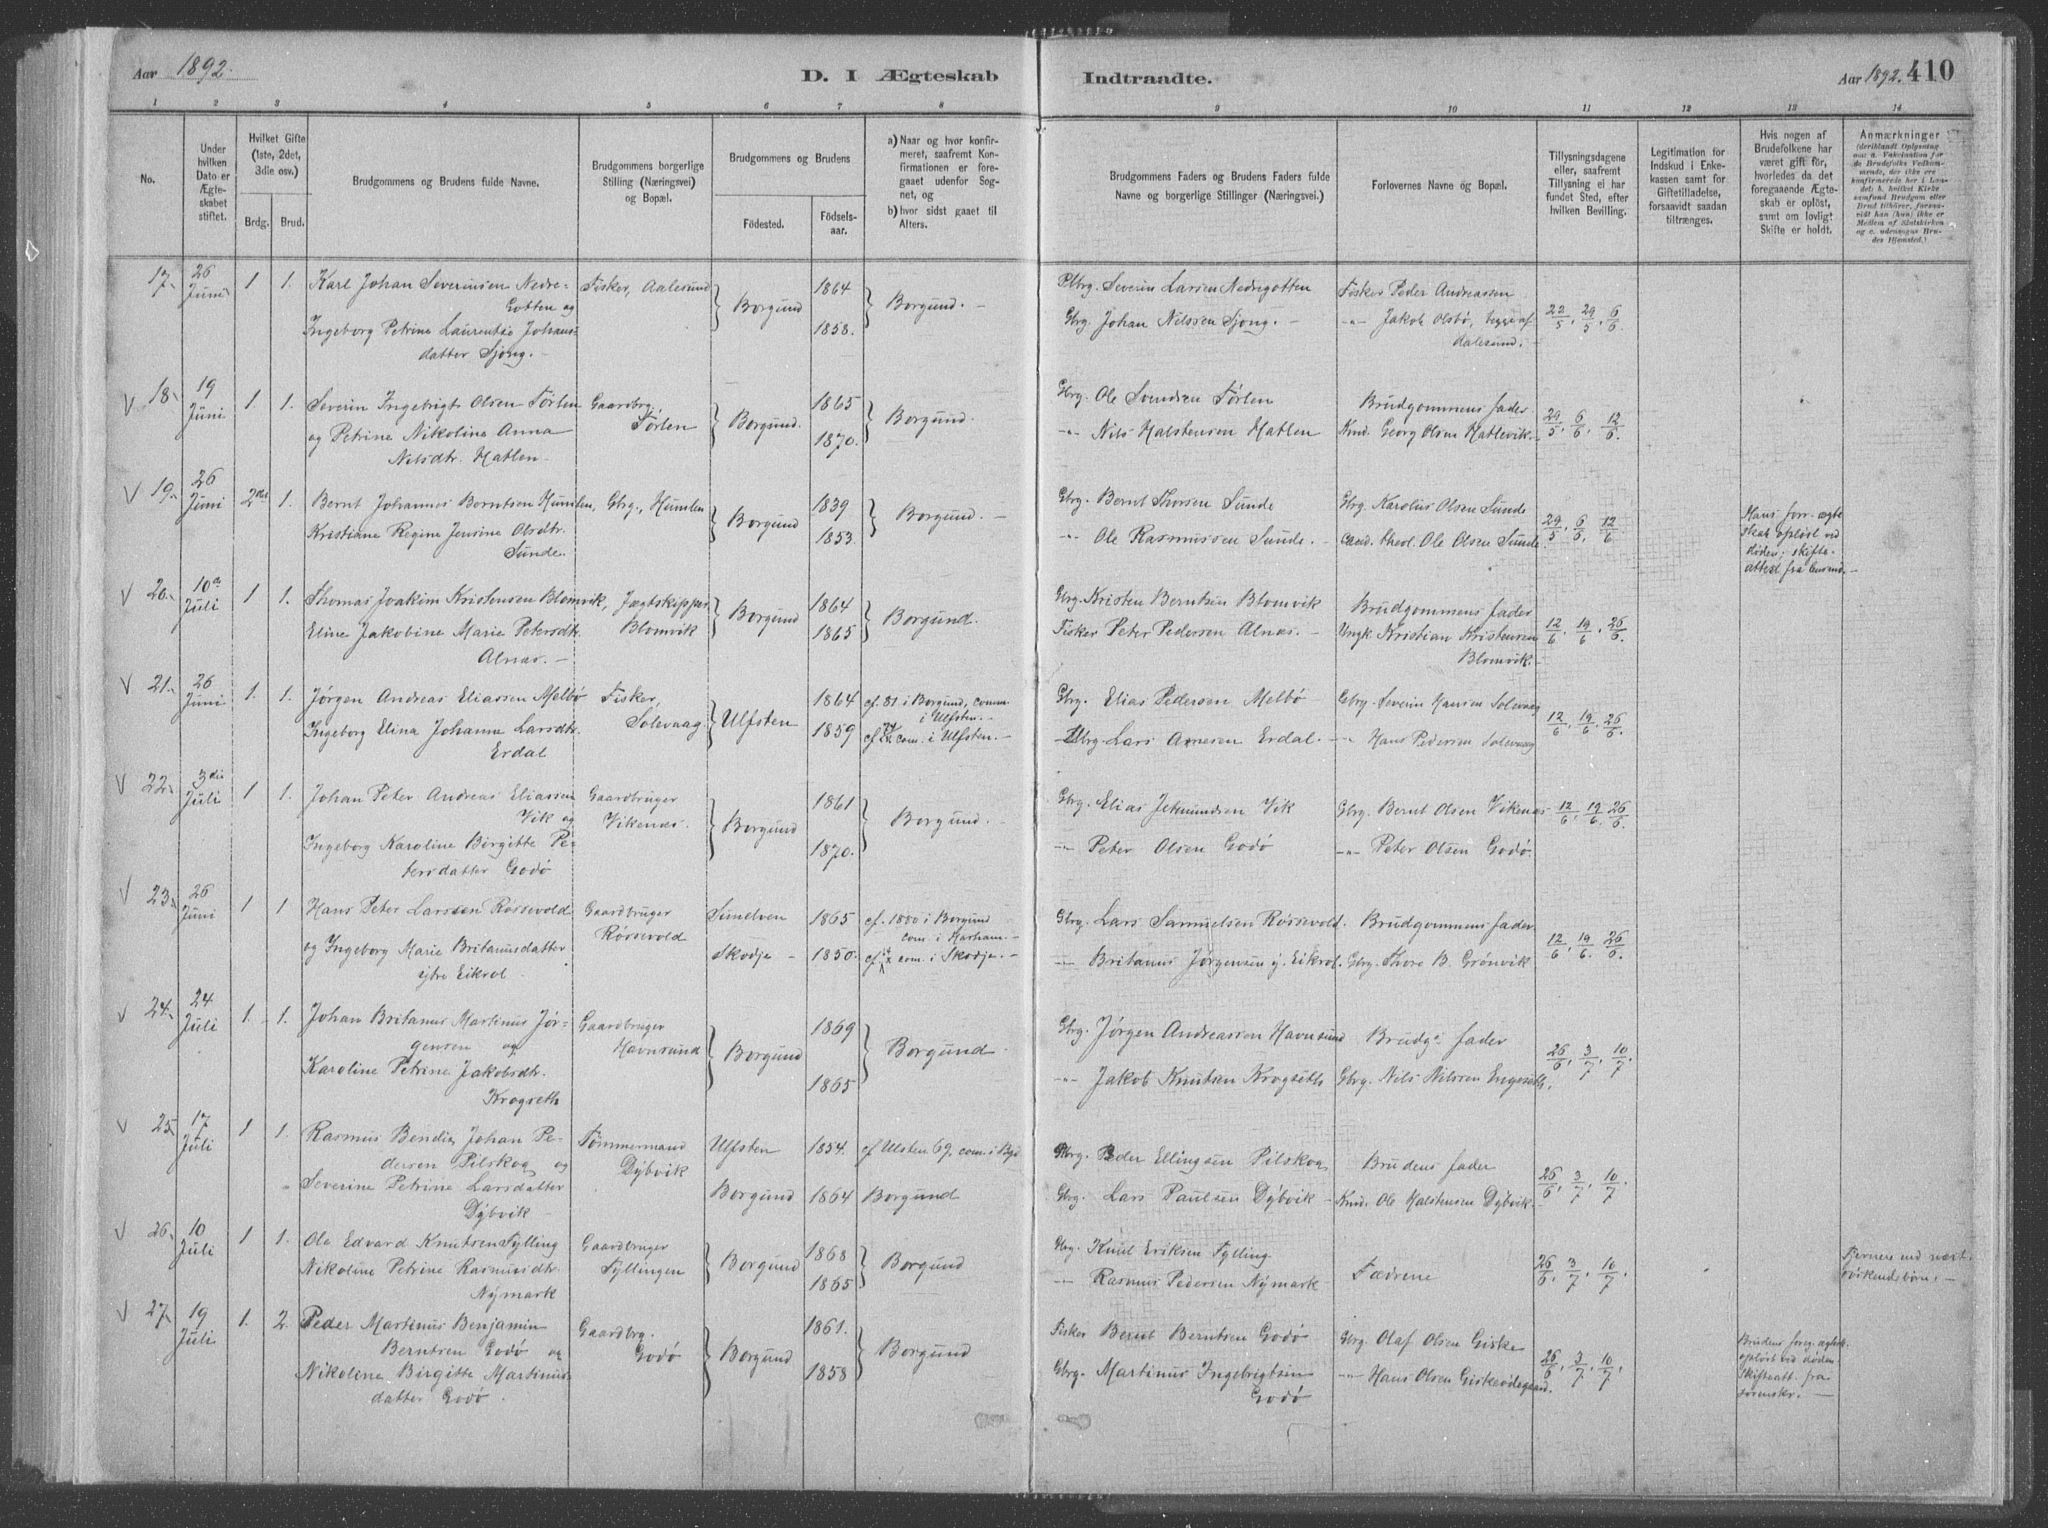 Aar 1892.
D. I Ægteskab
Indtraadte.
Aar 1892. 410
1 2 3 4 5 6 7 8 9 10 11 12 13 14
No.
Under hvilken Dato er Ægteskabet stiftet.
Hvilket Gifte (1ste, 2det, 3die osv.)
Brdg. Brud.
Brudgommens og Brudens fulde Navne.
Brudgommens borgerlige Stilling (Næringsvei) og Bopæl.
Brudgommens og Brudens
Födested.
Födselsaar.
a) Naar og hvor konfirmeret, saafremt Konfirmationen er foregaaet udenfor Sognet, og
b) hvor sidst gaaet til Alters.
Brudgommens Faders og Brudens Faders fulde Navne og borgerlige Stillinger (Næringsvei.)
Forlovernes Navne og Bopæl.
Tillysningsdagene eller, saafremt Tillysning ei har fundet Sted, efter hvilken Bevilling.
Legitimation for Indskud i Enkekassen samt for Giftetilladelse, forsaavidt saadan tiltrænges.
Hvis nogen af Brudefolkene har været gift för, hvorledes da det foregaaende Ægteskab er oplöst, samt om lovligt Skifte er holdt.
Anmærkninger
17. 26 Juni 1 1. Karl Johan Severinsen Nedregotten og Fisker, Aalesund Borgund 1864 Borgund. Severin Larsen Nedregotten Fisker Peder Andreassen 22/5, 29/5, 6/6.
Ingeborg Petrine Laurentse Johansdatter Sjong. 1858. Gbrg. Johan Nilssen Sjong. -"- Jakob Olsbö, begge af Aalesund.
18. 19 Juni 1. 1. Severin Ingebrigt Olsen Tørlen Gaardbrg. Tørlen Borgund. 1865 Borgund. Gbrg. Ole Svendsen Tørlen Brudgommens fader 29/5, 6/6, 12/6.
og Petrine Nikoline Anna Nilsdtr. Hatlen 1870. -"- Nils Halstensen Hatlen Knud Georg Olsen Hatlevik.
19. 26 Juni 2det 1. Bernt Johannes Berntsen Humlen, Gbrg., Humlen Borgund 1839 Borgund. Gbrg. Bernt Thorsen Sunde Gbrg. Karolus Olsen Sunde 29/5, 6/6, 12/6 Hans forr. ægteskab opløst ved døden; skifteattest fra lensmd.
Kristiane Regine Jensine Olsdtr. Sunde. 1853. -"- Ole Rasmussen Sunde. cand. theol. Ole Olsen Sunde.
20. 10de Juli 1 1. Thomas Joakim Kristensen Blomvik, Jægtskipper, Blomvik Borgund 1864 Borgund. Gbrg. Kristen Berntsen Blomvik Brudgommens fader 12/6, 19/6, 26/6
Eline Jakobine Marie Petersdtr. Alnæs. 1865 Fisker Peter Pedersen Alnæs. Ungk. Kristian Kristensen Blomvik.
21. 26 Juni 1. 1. Jørgen Andreas Eliassen Melbö Fisker, Solevaag Ulfsten 1864 cf. 81 i Borgund, comm. i Ulfsten. Gbrg. Elias Pedersen Melbö Gbrg. Severin Hansen Solevaag 12/6, 19/6, 26/6.
Ingeborg Elina Johanna Larsdtr. Erdal 1859 com. i Ulfsten. Lars Arnesen Erdal. -"- Hans Pedersen Solevaag
22. 3die Juli 1 1. Johan Peter Andreas Eliassen Vik og Gaardbruger Vikenæs. Borgund 1861 Borgund. Gbrg. Elias Jetmundsen Vik Gbrg. Bernt Olsen Vikenæs 12/6, 19/6, 26/6.
Ingeborg Karoline Birgitte Petersdatter Godö 1870. -"- Peter Olsen Godö -"- Peter Olsen Godö.
23. 26 Juni 1 1 Hans Peter Larssen Røssevold Gaardbruger Røssevold Sunelven 1865 cf. 1880 i Borgund com. i Harham. Gbrg. Lars Samuelsen Røssevold. Brudgommens fader 12/6, 19/6, 26/6.
og Ingeborg Marie Britanusdatter ytre Eikrol. Skodje 1850. com. i Skodje. -"- Britanus Jørgensen y. Eikrol. Gbrg. Thore B. Grönvik
24. 24 Juli 1. 1. Johan Britanus Martinus Jørgensen og Gaardbruger Havnsund Borgund 1869 Borgund Gbrg. Jørgen Andreassen Havnsund Brudgs. fader 26/6, 3/7, 10/7.
Karoline Petrine Jakobsdtr. Krogseth 1865 -"- Jakob Knutsen Krogseth Gbrg. Nils Nilssen Engeseth.
25. 17 Juli 1 1. Rasmus Bendix Johan Pedersen Pilskog og Tømmermand Dybvik Ulfsten 1854. cf Ulsten 69. com. i Bgd Gbrg. Peder Ellingsen Pilskog Brudens fader 26/6, 3/7, 10/7.
Severine Petrine Larsdatter Dybvik Borgund 1864 Borgund Gbrg. Lars Paulsen Dybvik Knud Ole Halstensen Dybvik.
26. 10 Juli 1 1. Ole Edvard Knutsen Fylling Gaardbruger Fyllingen Borgund 1868 Borgund Gbrg. Knut Eriksen Fylling Fædrene 26/6, 3/7, 10/7.
Nikoline Petrine Rasmusdtr. Nymark 1865 -"- Rasmus Pedersen Nymark Fjernere end næstsødskendebörn.
27. 19 Juli 1. 2. Peder Martinus Benjamin Berntsen Godö og Gaardbrg. Godö Borgund 1861. Borgund Fisker Bernt Berntsen Godö Gbrg. Olaf Olsen Giske 26/6, 3/7, 10/7 Brudens foreg. ægtesk. opløst ved døden Skifteatt. fra sorenskr.
Nikoline Birgitte Martinusdatter Godö. 1858 Gbrg. Martinus Ingebrigtsen Godö -"- Hans Olsen Giskeödegaard.